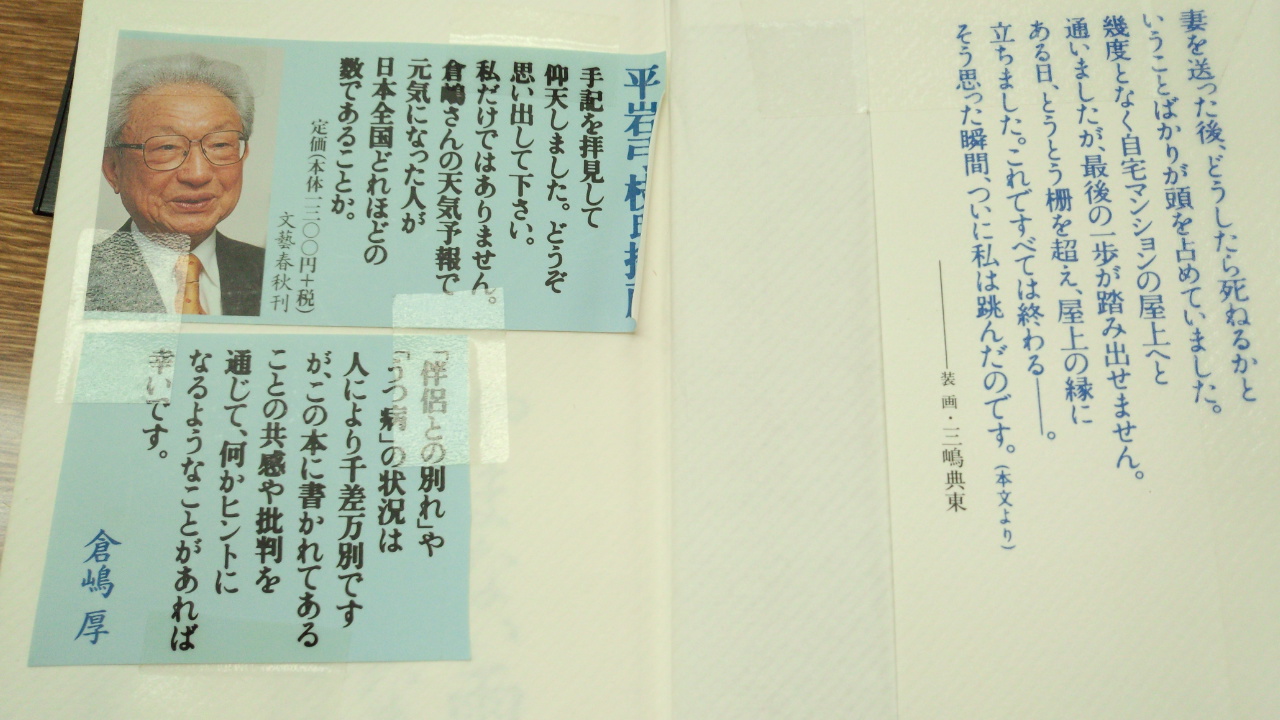 妻を送った後、どうしたら死ねるかと
いうことばかりが頭を占めていました。
幾度となく自宅マンションの屋上へと
通いましたが、最後の一歩が踏み出せません。
ある日、とうとう柵を超え、屋上の縁に
立ちました。これですべては終わる――。
そう思った瞬間、ついに私は跳んだのです。(本文より)
――装画・三嶋典東
平岩弓枝氏推薦
手記を拝見して
仰天しました。どうぞ
思い出して下さい。
私だけではありません。
倉嶋さんの天気予報で
元気になった人が
日本全国どれほどの
数であることか。
定価(本体一二〇〇円+税)
文藝春秋刊
「伴侶との別れ」や
「うつ病」の状況は
人により千差万別です
が、この本に書かれてある
ことの共感や批判を
通じて、何かヒントに
なるようなことがあれば
幸いです。
倉嶋厚